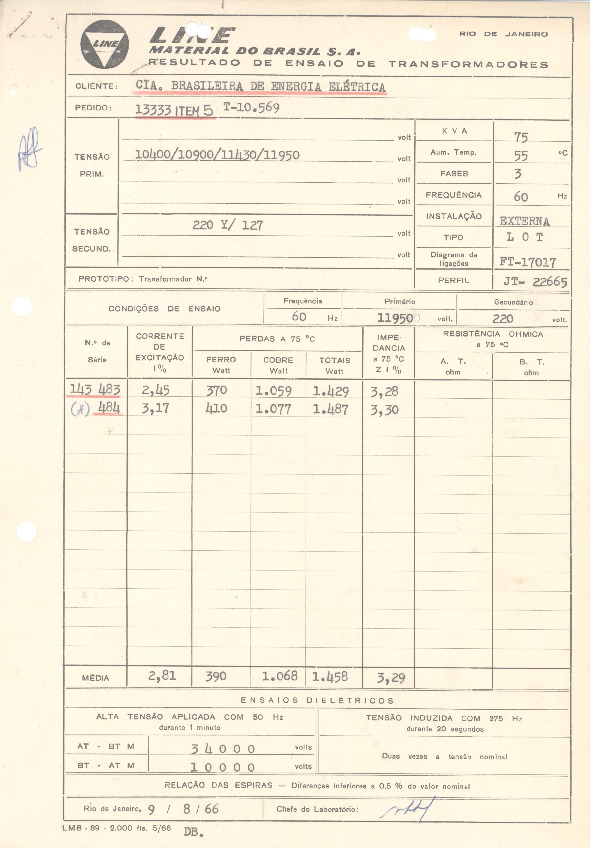 LINE
LINE
RIO DE JANEIRO
MATERIAL DO BRASIL S. A.
RESULTADO DE ENSAIO DE TRANSFORMADORES
CLIENTE: CIA. BRASILEIRA DE ENERGIA ELÉTRICA
PEDIDO: 13333 ITEM 5 T-10.569
volt
TENSÃO PRIM. 10400/10900/11430/11950 volt
volt
volt
TENSÃO SECUND. 220 Y/ 127 volt
volt
K V A 75
Aum. Temp. 55 ºC
FASES 3
FREQUÊNCIA 60 Hz
INSTALAÇÃO EXTERNA
TIPO L O T
Diagrama de ligações FT-17017
PROTOTIPO: Transformador N.º
PERFIL JT- 22665
CONDIÇÕES DE ENSAIO Frequência 60 Hz Primário 11950 volt. Secundário 220 volt.
N.º de Série CORRENTE DE EXCITAÇÃO I % PERDAS A 75 ºC IMPEDANCIA a 75 ºC Z I % RESISTÊNCIA OHMICA a 75 ºC
FERRO Watt COBRE Watt TOTAIS Watt A. T. ohm B. T. ohm
143 483 2,45 370 1.059 1.429 3,28
(*) 484 3,17 410 1.077 1.487 3,30
MÉDIA 2,81 390 1.068 1.458 3,29
ENSAIOS DIELÉTRICOS
ALTA TENSÃO APLICADA COM 50 Hz
durante 1 minuto
TENSÃO INDUZIDA COM 375 Hz
durante 20 segundos
AT - BT M 34000 volts
BT - AT M 10000 volts
Duas vezes a tensão nominal
RELAÇÃO DAS ESPIRAS — Diferenças inferiores a 0,5 % do valor nominal
Rio de Janeiro, 9 / 8 / 66 Chefe do Laboratório:
LMB - 89 - 2.000 fls. 5/66 DB.